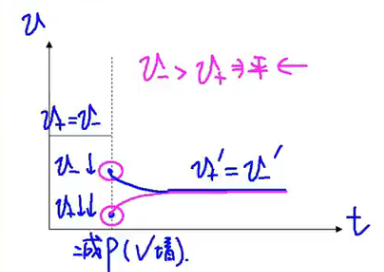 v
v₋ > v₊ ⇒ 平 ←
v₊ = v₋
v₋ ↓
v₊' = v₋'
v₊ ↓↓
t
=减P(V增).